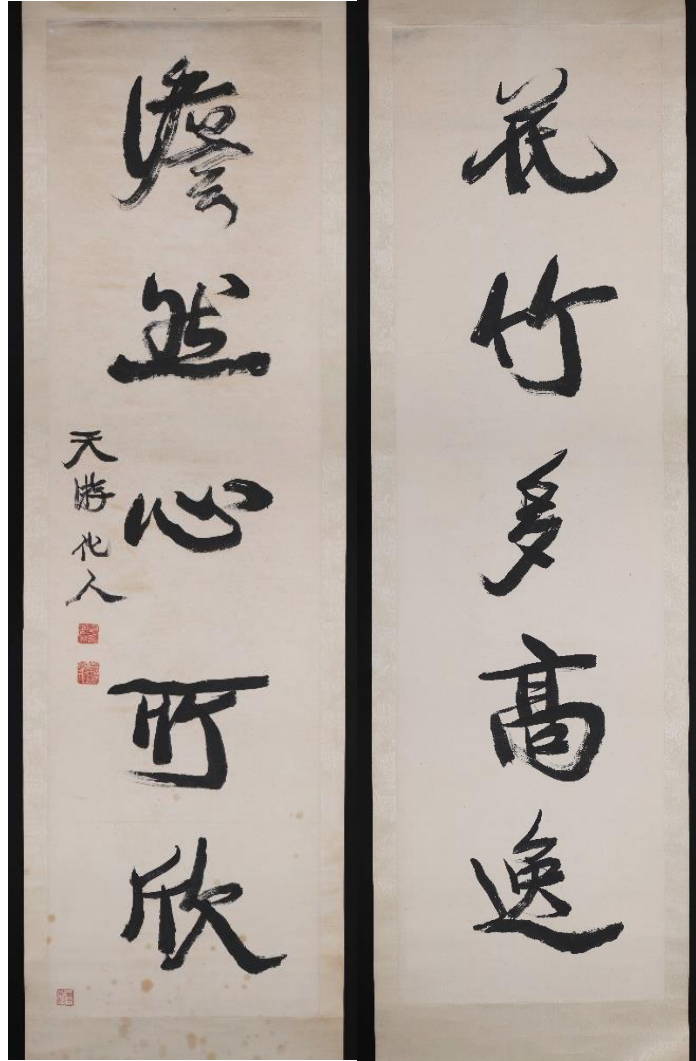 花竹多高逸
澹然心所欣
天游化人